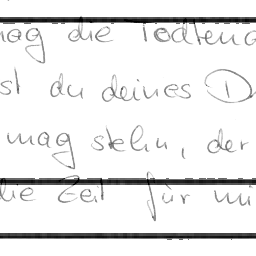 mag die Todteng
st du deines D
mag stehn, der
die Zeit für mi